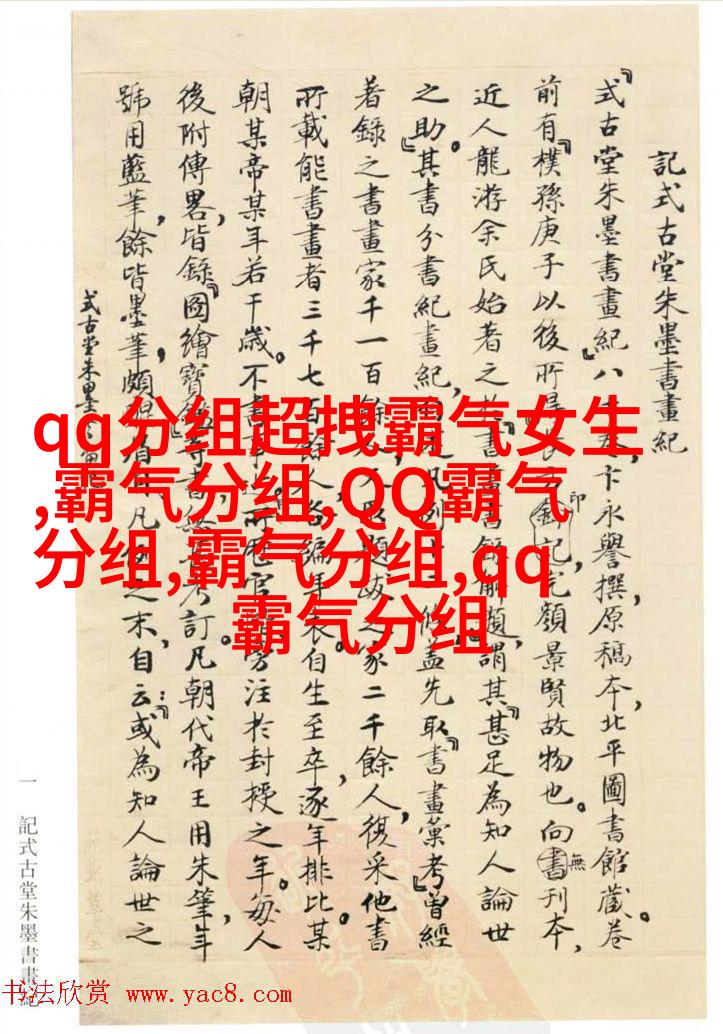 記式古堂朱墨書畫紀
『式古堂朱墨書畫紀』八十卷,卞永譽撰,原稿本,北平圖書館藏。卷
前有『樸孫庚子以後所
記,完顏景賢故物也。向無刊本,
近人龍游余氏始著之於
謂其『甚足為知人論世
之助』。其書分書紀畫紀,
蓋先取『書畫彙考』曾經
著錄之書畫家千一百餘
之家二千餘人,復采他書
所載能書畫者三千七百餘人,
編年表。自生至卒,逐年排比。某
朝某帝某年若干歲。不書事
旁注於封授之年。每人
後附傳畧,皆錄『圖繪寶
訂。凡朝代帝王用朱筆,年
號用藍筆,餘皆墨筆,頗
之末,自云:『或為知人論世之
式古堂朱墨
一
記式古堂朱墨書畫紀
qq分组超拽霸气女生
,霸气分组,QQ霸气
分组,霸气分组,qq
霸气分组
书法欣赏 www.yac8.com